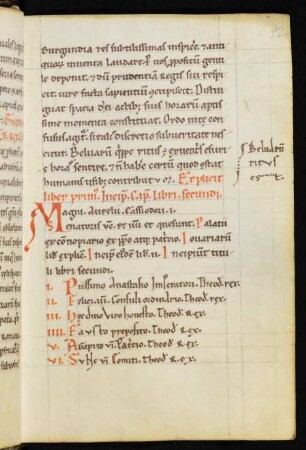 Burgundia res subtilissimas inspicere & anti
quorum inventa laudare. p vos ppositum genti
le deponit. & dum prudentiā regis sui respi
cit. iure facta sapientium concupiscit. Distin
guat spacia diei actib; suis. horarū aptis
sime momenta constituat. Ordo vite con
fusus agitur. si talis discretio sub veritate nes
citur. Beluarum quippe ritus e. ex ventris esurie
horas sentire. & n habere certū quod ostat
humanis usib; contributū. Explicit
liber primus. Incip Cap. libri secundi.
Magni. Aurelii. Cassiodori.
Senatoris vc. et ill. ex questuris. Palatii
ex cons ordinario ex ppo atq; patricio. variarum
lib explic. Incip eiusdē lib. ii. Incipiunt titu
li libri secundi.
i. Piissimo Anastasio Imperatori. Theod rex.
ii. Felici vi. Consuli ordinario. Theod. rex
iii. Theod. rex.
iiii. Fausto preposito. Theod rex.
v. Agapito vi. Patricio. Theod rex.
vi. Comiti. Theod rex.
Beluarū
ritus